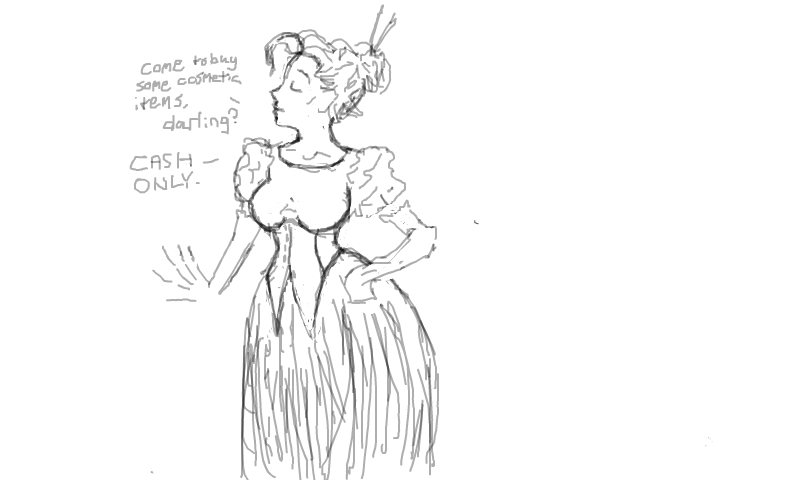 Come to buy
some cosmetic
items,
darling?
CASH –
ONLY.